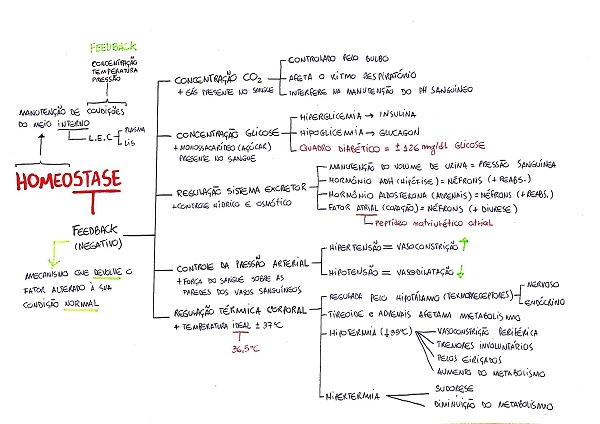 FEEDBACK
CONCENTRAÇÃO
TEMPERATURA
PRESSÃO
MANUTENÇÃO DE CONDIÇÕES
DO MEIO INTERNO
L.E.C
PLASMA
LIS
HOMEOSTASE
FEEDBACK
(NEGATIVO)
MECANISMO QUE DEVOLVE O
FATOR ALTERADO À SUA
CONDIÇÃO NORMAL
CONCENTRAÇÃO CO₂
+ GÁS PRESENTE NO SANGUE
CONTROLADO PELO BULBO
AFETA O RITMO RESPIRATÓRIO
INTERFERE NA MANUTENÇÃO DO PH SANGUÍNEO
CONCENTRAÇÃO GLICOSE
+ MONOSSACARÍDEO (AÇÚCAR)
PRESENTE NO SANGUE
HIPERGLICEMIA → INSULINA
HIPOGLICEMIA → GLUCAGON
QUADRO DIABÉTICO = ± 126 mg/dl GLICOSE
REGULAÇÃO SISTEMA EXCRETOR
+ CONTROLE HÍDRICO E OSMÓTICO
MANUTENÇÃO DO VOLUME DE URINA = PRESSÃO SANGUÍNEA
HORMÔNIO ADH (HIPÓFISE) = NÉFRONS (+ REABS.)
HORMÔNIO ALDOSTERONA (ADRENAIS) = NÉFRONS (+ REABS.)
FATOR ATRIAL (CORAÇÃO) = NÉFRONS (+ DIURESE)
Peptídeo natriurético atrial
CONTROLE DA PRESSÃO ARTERIAL
+ FORÇA DO SANGUE SOBRE AS
PAREDES DOS VASOS SANGUÍNEOS
HIPERTENSÃO = VASOCONSTRIÇÃO ↑
HIPOTENSÃO = VASODILATAÇÃO ↓
REGULAÇÃO TÉRMICA CORPORAL
+ TEMPERATURA IDEAL ± 37°C
36,5°C
REGULADA PELO HIPOTÁLAMO (TERMORECEPTORES)
NERVOSO
ENDÓCRINO
TIREOIDE E ADRENAIS AFETAM METABOLISMO
HIPOTERMIA (↓35°C)
VASOCONSTRIÇÃO PERIFÉRICA
TREMORES INVOLUNTÁRIOS
PELOS EIRIÇADOS
AUMENTO DO METABOLISMO
HIPERTERMIA
SUDORESE
DIMINUIÇÃO DO METABOLISMO